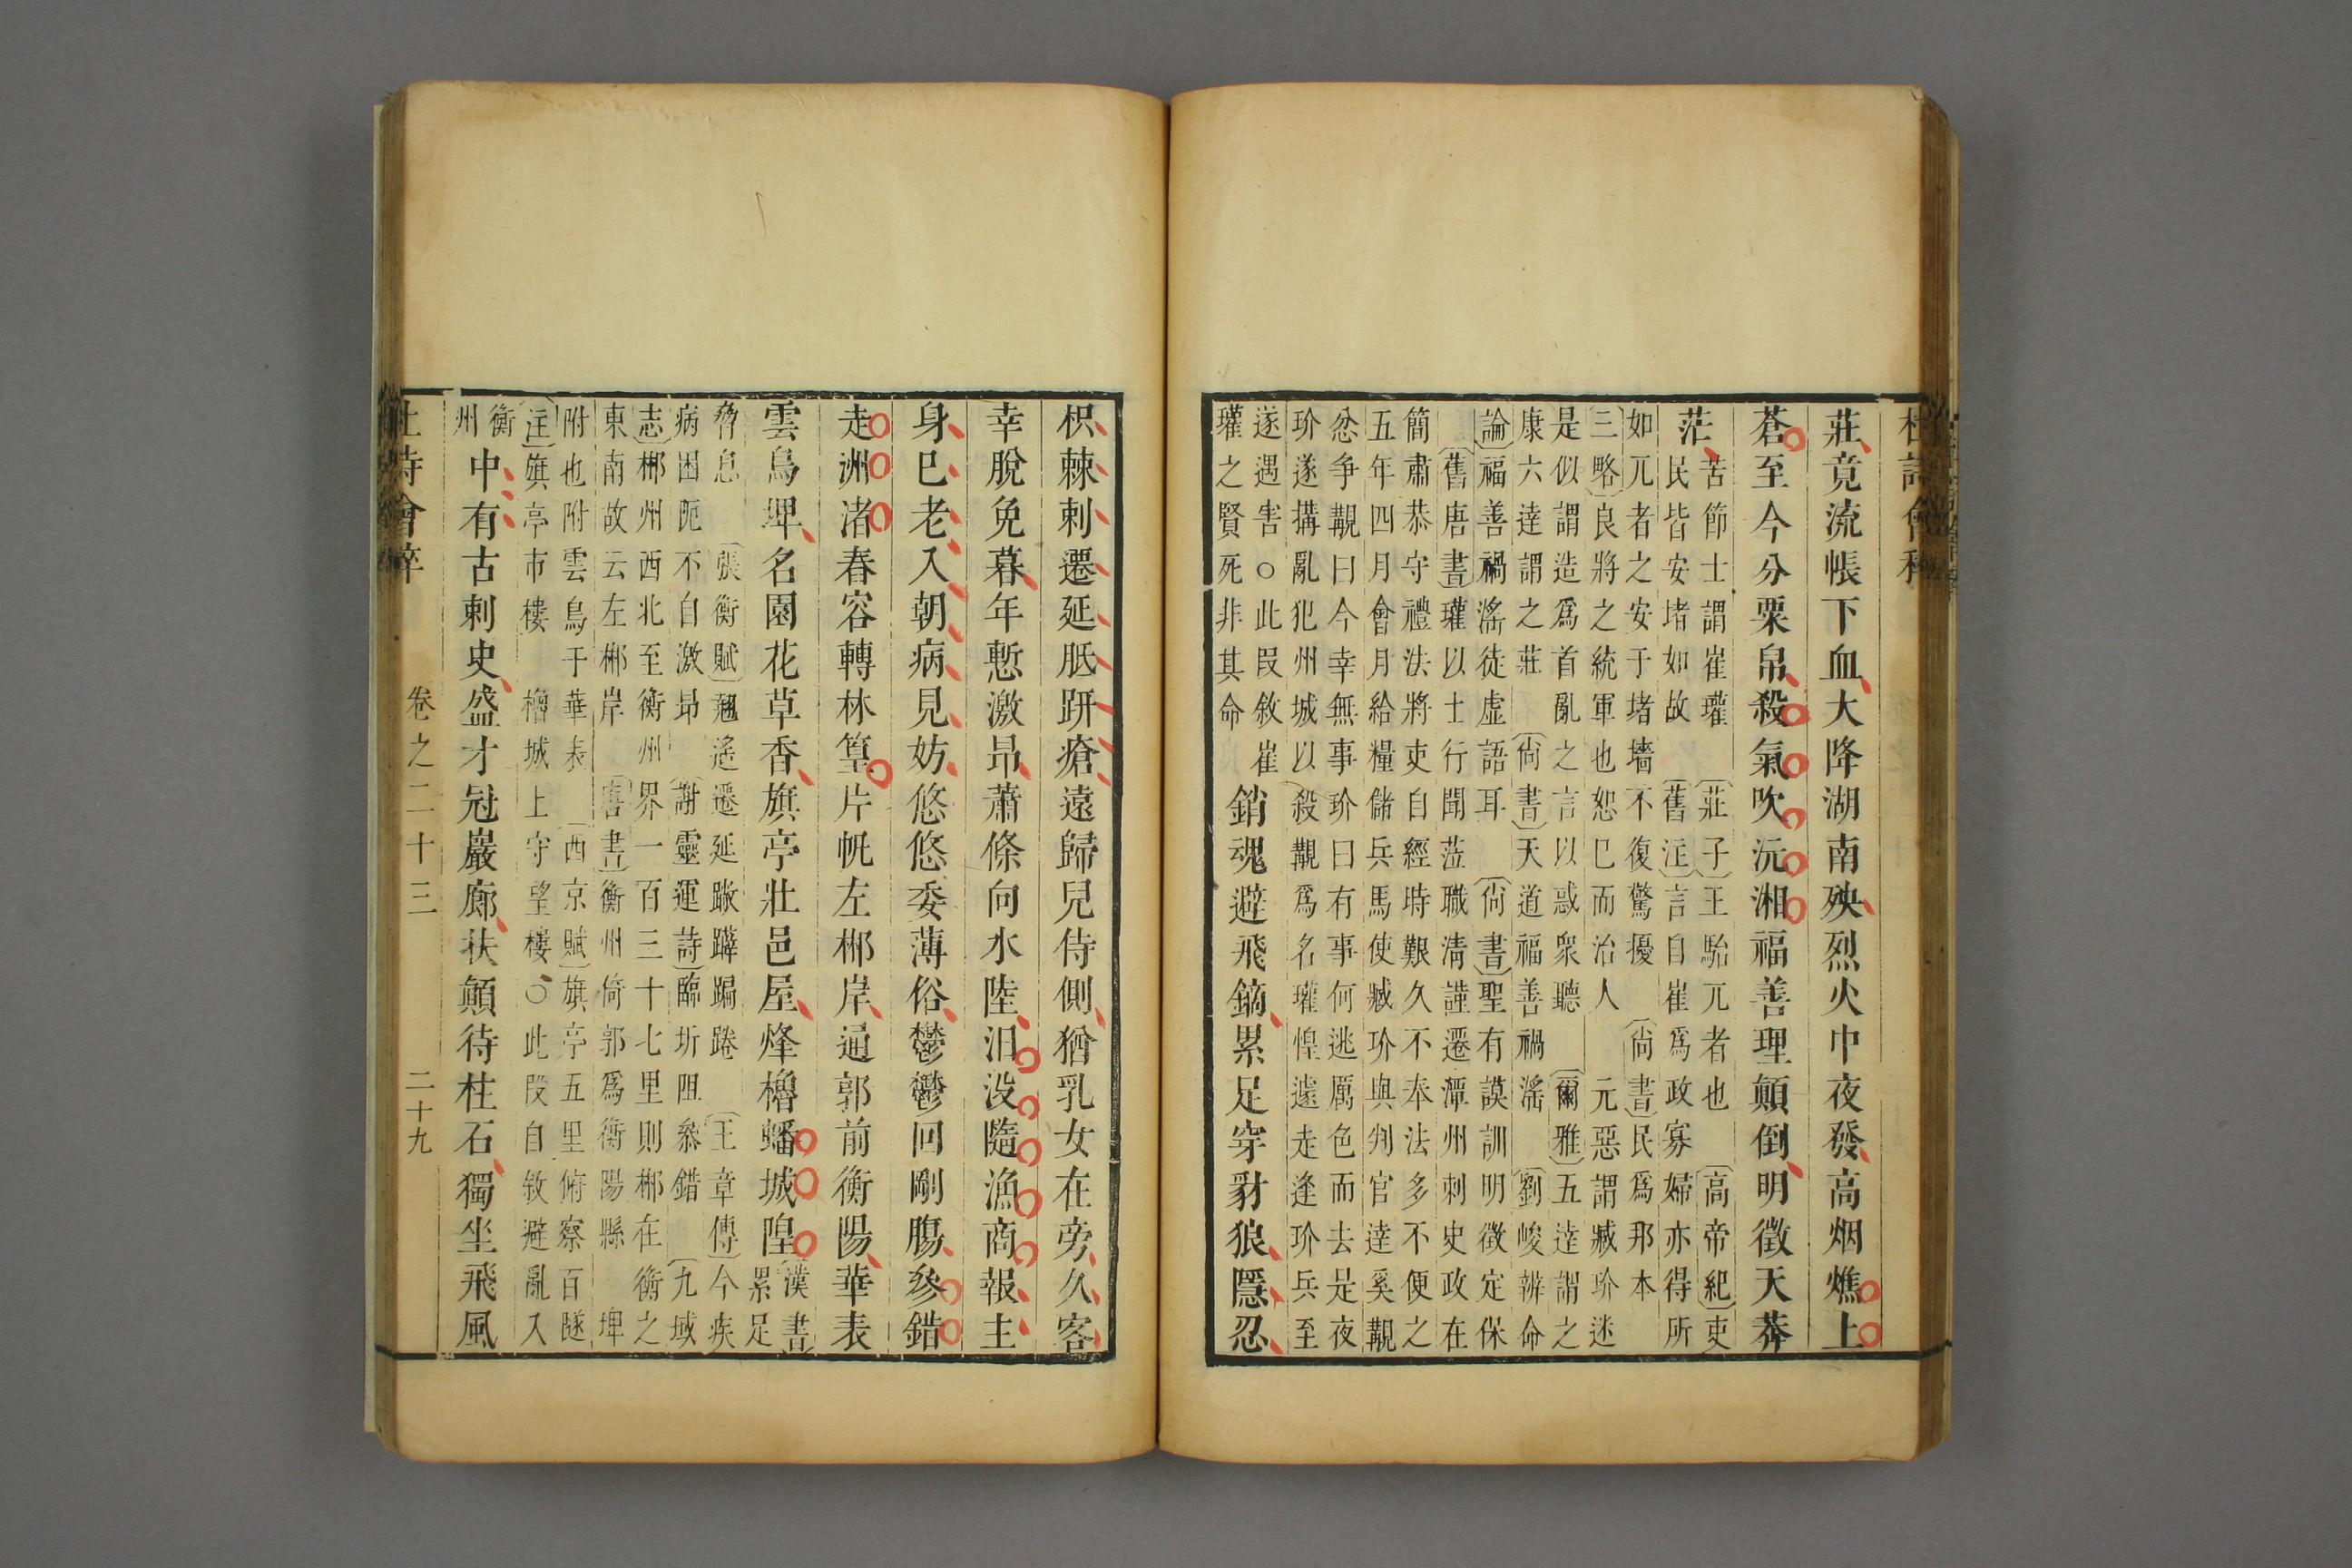 杜詩會稡
莊竟流帳下血大降湖南殃烈火中夜發高烟燋上
蒼至今分粟帛殺氣吹沅湘福善理顛倒明徵天莽
茫
苦節士謂崔瓘〔莊子〕王駘兀者也〔高帝紀〕吏
民皆安堵如故〔舊注〕言自崔爲政寡婦亦得所
如兀者之安于堵墻不復驚擾〔尙書〕民爲邦本
三略〕良將之統軍也恕巳而治人 元惡謂臧玠迷
是似謂造爲首亂之言以惑衆聽〔爾雅〕五逹謂之
康六逹謂之莊〔尙書〕天道福善禍滛〔劉峻辨命
論〕福善禍滛徒虛語耳〔尙書〕聖有謨訓明徵定保
〔舊唐書〕瓘以士行聞蒞職淸謹遷潭州刺史政在
簡肅恭守禮法將吏自經時艱久不奉法多不便之
五年四月會月給糧儲兵馬使臧玠與判官逹奚覯
忿爭覯曰今幸無事玠曰有事何逃厲色而去是夜
玠遂搆亂犯州城以殺覯爲名瓘惶遽走逢玠兵至
遂遇害○此叚敘崔
瓘之賢死非其命
銷魂避飛鏑累足穿豺狼隱忍
枳棘刺遷延胝趼瘡遠歸兒侍側猶乳女在旁久客
幸脫免暮年慙激昻蕭條向水陸汨沒隨漁商報主
身已老入朝病見妨悠悠委薄俗鬱鬱回剛膓參錯
走洲渚舂容轉林篁片帆左郴岸通郭前衡陽華表
雲鳥埤名園花草香旗亭壯邑屋烽櫓蟠城隍
漢書〕
累足
脅息〔張衡賦〕翹遙遷延蹴䠥蹁踡〔王章傳〕今疾
病困阨不自激昻〔謝靈運詩〕臨圻阻叅錯〔九域
志〕郴州西北至衡州界一百三十七里則郴在衡之
東南故云左郴岸〔唐書〕衡州倚郭爲衡陽縣 埤
附也附雲鳥于華表〔西京賦〕旗亭五里俯察百隧
注〕旗亭市樓 櫓城上守望樓○此叚自敘避亂入
衡
州
中有古刺史盛才冠巖廊扶顛待柱石獨坐飛風
杜詩會稡 卷之二十三 二十九